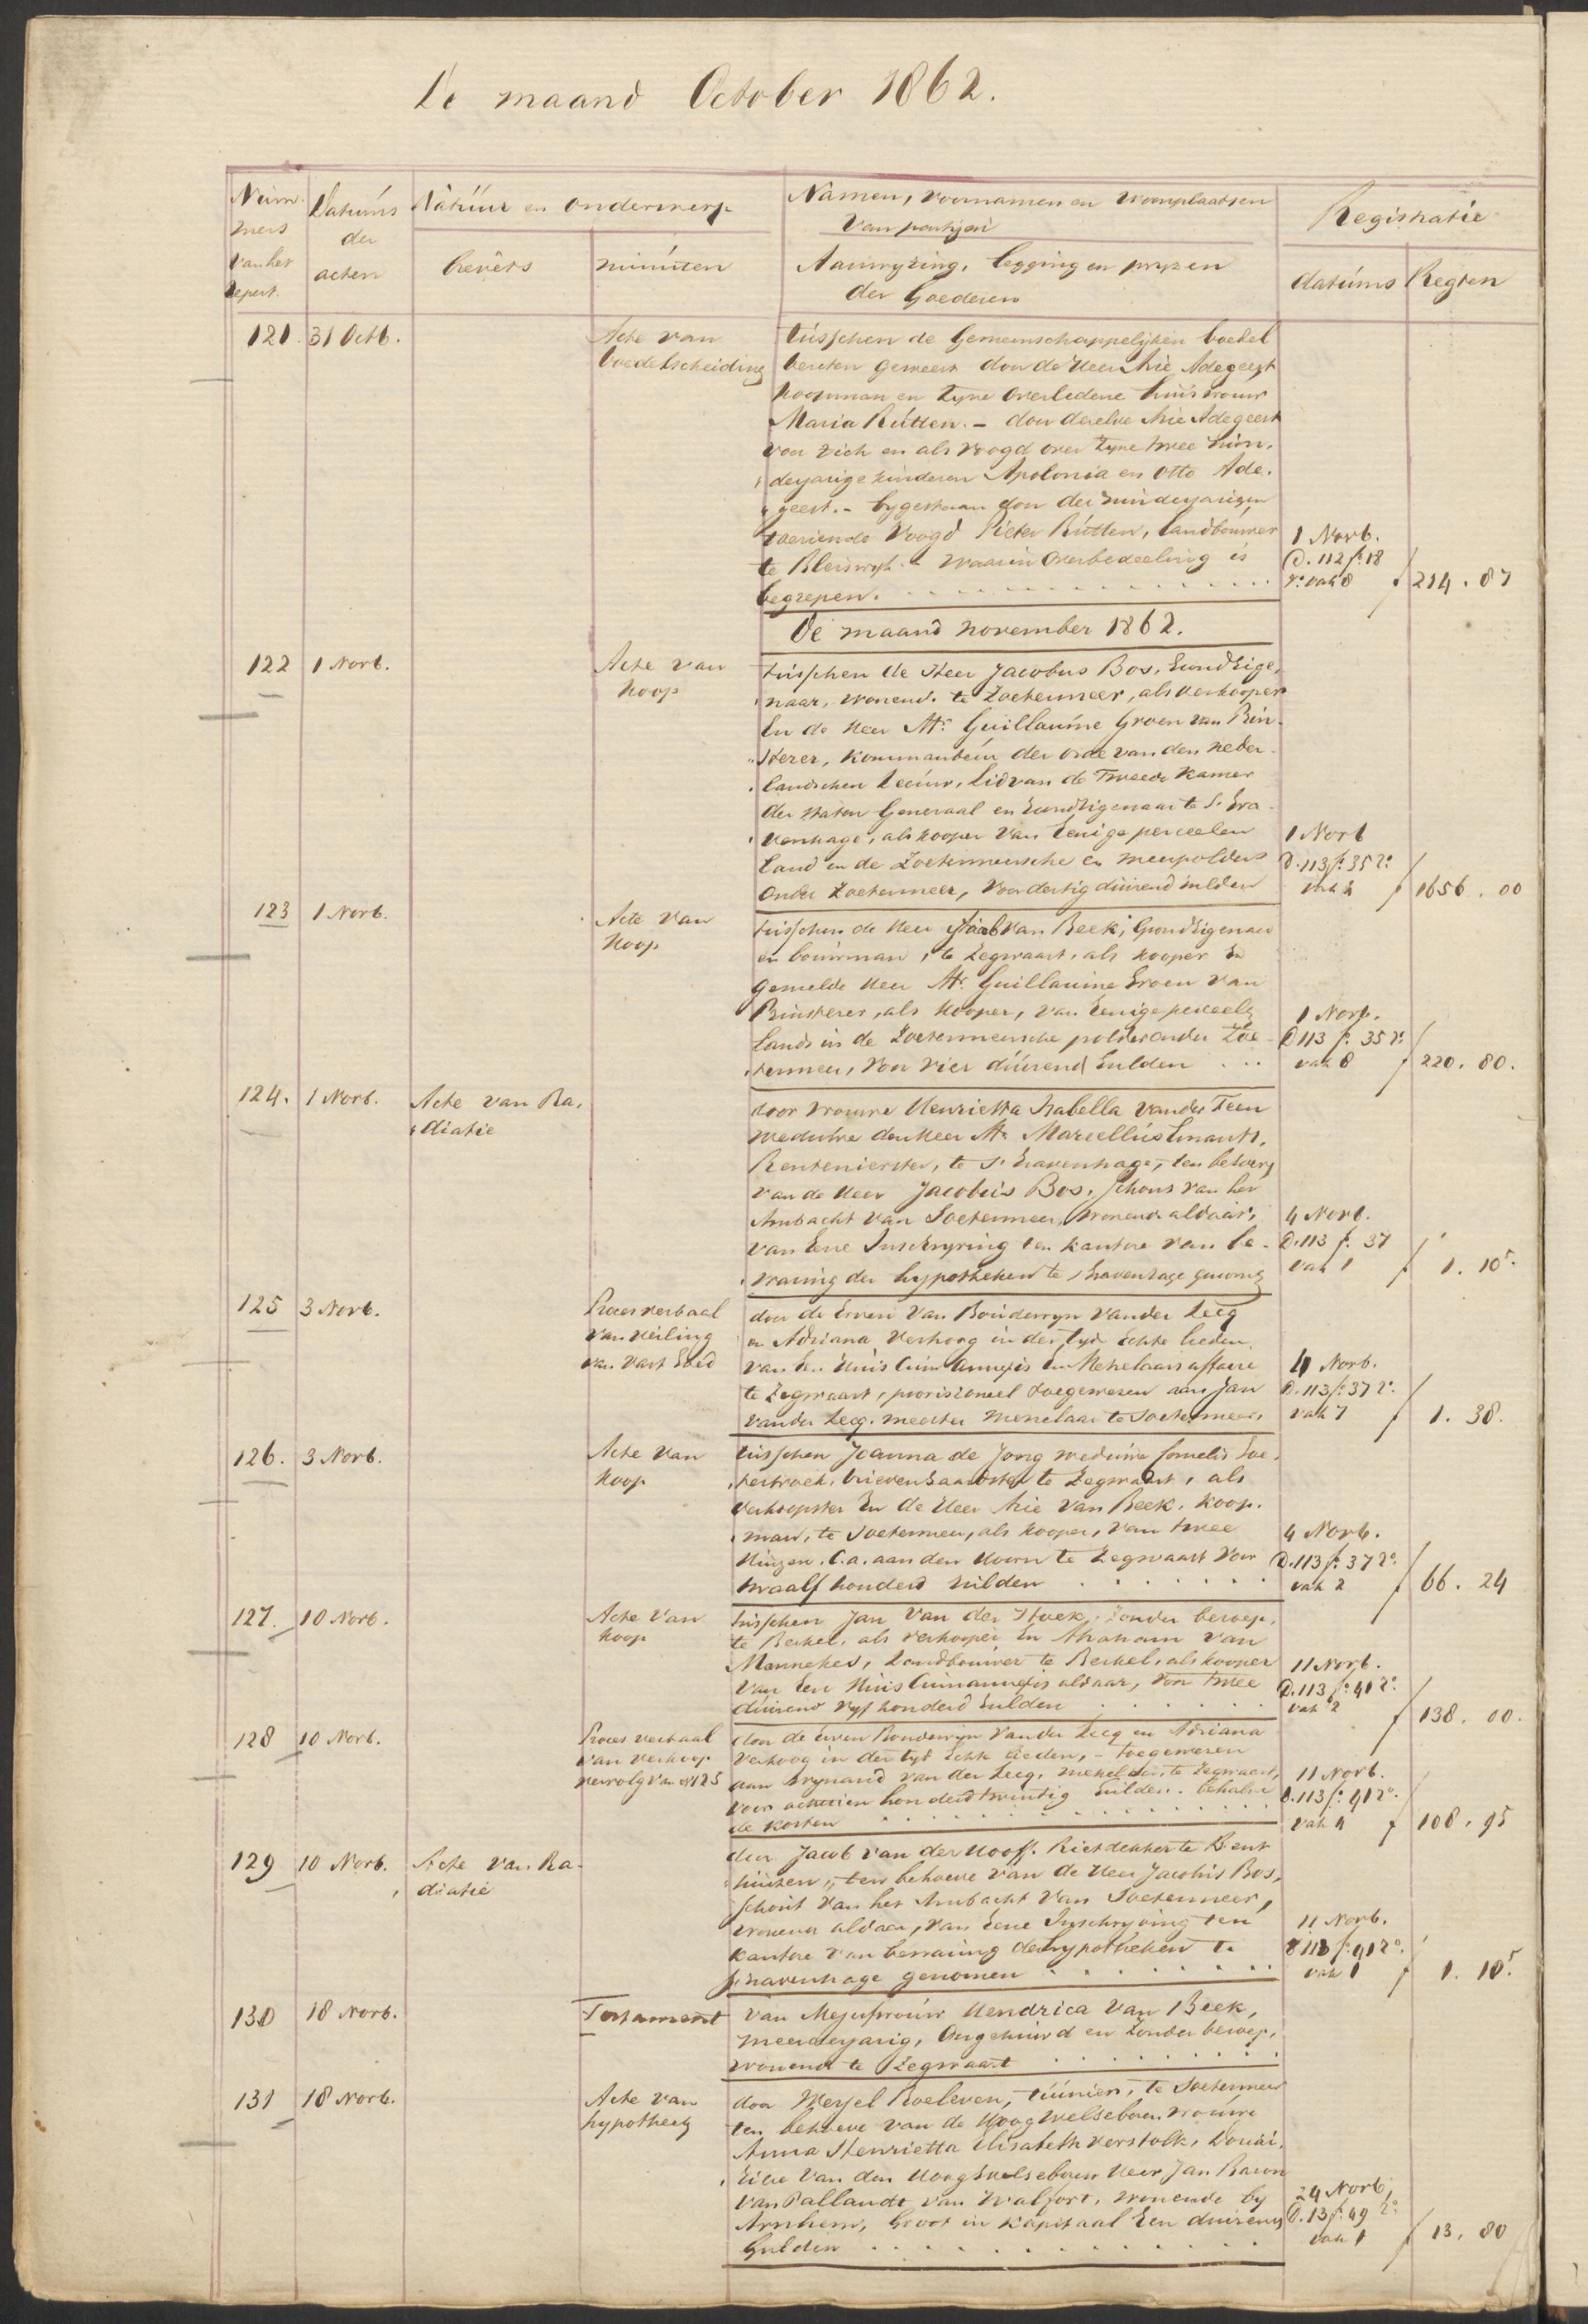 De maand October 1862.
Num
mers
van het
Repert.
Datums
der
acten
Natuur en onderwerp
brevets
minuten
Namen, voornamen en woonplaatsen
van partijen
Aanwyzing, legging en pryzen
der Goederen
Registratie
datums
Regten
121. 31 Octb.
Acte van
boedelscheiding
tusschen de Gemeenschappelijken boedel
bezeten geweest door de Heer Arie Adegeest
koopman en zyne overledene huisvrouw
Maria Rutten. - door dezelve Arie Adegeest
voor zich en als voogd over zyne twee min.
derjarige kinderen Apolonia en Otto Ade.
geest. - bygestaan door der minderjarigen
toeziende Voogd Pieter Rutten, landbouwer
te Bleiswyk. - waarin overbedeeling is
begrepen.
1 Novb.
D. 112 f. 18
r. vak 8 f 214. 87
De maand november 1862.
122 1 Novb.
Acte van
Koop
tusschen de Heer Jacobus Bos, Grondeige
naar, wonend. te Zoetermeer, als verkooper
En de Heer Mr. Guillaume Groen van Prin
sterer, kommandeur der orde van den neder
landschen Leeuw, Lid van de Tweede Kamer
der Staten Generaal en Grondeigenaar te s' Gra
venhage, als kooper van Eenige perceelen
Land in de Zoetermeersche en meerpolders
onder Zoetermeer, voor dertig duizend Gulden
1 Novb
D. 113 f. 35 v.
vak 2 f 1656. 00
123 1 Novb.
Acte van
Koop
tusschen de Heer Jacob van Beek, Grondeigenaar
en bouwman, te Zegwaart, als kooper En
gemelde Heer Mr. Guillaume Groen van
Prinsterer, als Kooper, van Eenige perceelen
Lands in de Zoetermeersche polder onder Zoe
termeer, voor vier duizend Gulden
1 Novb.
D 113 f. 35 v.
vak 8 f 220. 80.
124. 1 Novb. Acte van Ra.
diatie
door Vrouwe Henrietta Isabella van der Feen
weduwe den Heer Mr. Marcellus Emants,
Rentenierster, te s' Gravenhage, ten behoeve
van de Heer Jacobus Bos, schout van het
Ambacht van Soetermeer, wonende aldaar,
van Eene Inschryving ten kantore van be
waring der hypotheken te s'Gravenhage genomen
4 Novb.
D. 113 f. 37
vak 1 f 1. 10 5.
125 3 Novb.
Proces verbaal
van Veiling
van vast Goed
door de Erven van Boudewyn van der Leeg
en Adriana Verhoog in der tyd Echte lieden.
van Een Huis Cum annexis En Metselaars affaire
te Zegwaart, provisioneel toegewezen aan Jan
van der Leeg. meester Metselaar te Soetermeer.
4 Novb.
D. 113 f. 37 v.
vak 7 f 1. 38.
126. 3 Novb.
Acte van
Koop
tusschen Joanna de Jong weduwe Cornelis Soe
, brievengaarster te Zegwaart, als
verkoopster En de Heer Arie van Beek, koop.
man, te Soetermeer, als kooper, van twee
Huizen. C.a. aan den Hoorn te Zegwaart voor
twaalf honderd Gulden
4 Novb.
D. 113 f. 37 v.
vak 2 f 66. 24
127. 10 Novb.
Acte van
koop
tusschen Jan van der Hoek, Zonder beroep,
te Berkel, als verkooper En Abraham van
Mannekes, Landbouwer te Berkel, als kooper
van Een Huis Cum annexis aldaar, voor twee
duizend vyf honderd Gulden
11 Novb.
D. 113 f. 41 v.
vak 2 f 138. 00.
128 10 Novb.
Proces verbaal
van verkoop
vervolg van No 125
door de Erven Boudewyn van der Leeg en Adriana
Verhoog in der tyd Echte Lieden, - toegewezen
aan Wynand van der Leeg, metselaar, te Zegwaart,
voor achttien honderd twintig Gulden. behalve
de kosten
11 Novb.
D. 113 f. 41 v.
vak 4 f 108. 95
129 10 Novb. Acte van Ra
diatie
door Jacob van der Hooff. Rietdekker te Bent
huizen, ten behoeve van de Heer Jacobus Bos,
schout van het Ambacht van Soetermeer,
wonend aldaar, van Eene Inschryving ten
kantore van bewaring der hypotheken te
s'Gravenhage genomen
11 Novb.
D 113 f. 41 v.
vak 1 f 1. 10 5.
130 18 Novb.
Testament
van Mejufvrouw Hendrica van Beek,
meerderjarig, Ongehuwd en Zonder beroep,
wonende te Zegwaart
131 18 Novb.
Acte van
hypotheek
door Wessel Roeleven, tuinier, te Soetermeer
ten behoeve van de Hoog Welgeboren Vrouwe
Anna Henrietta Elisabeth Verstolk, Douai.
riere van den Hoog Welgeboren Heer Jan Baron
van Pallandt van Walfort, wonende by
Arnhem, Groot in kapitaal Een duizend
Gulden
24 Novb.
D. 13 f. 49 v.
vak 1 f 13. 80